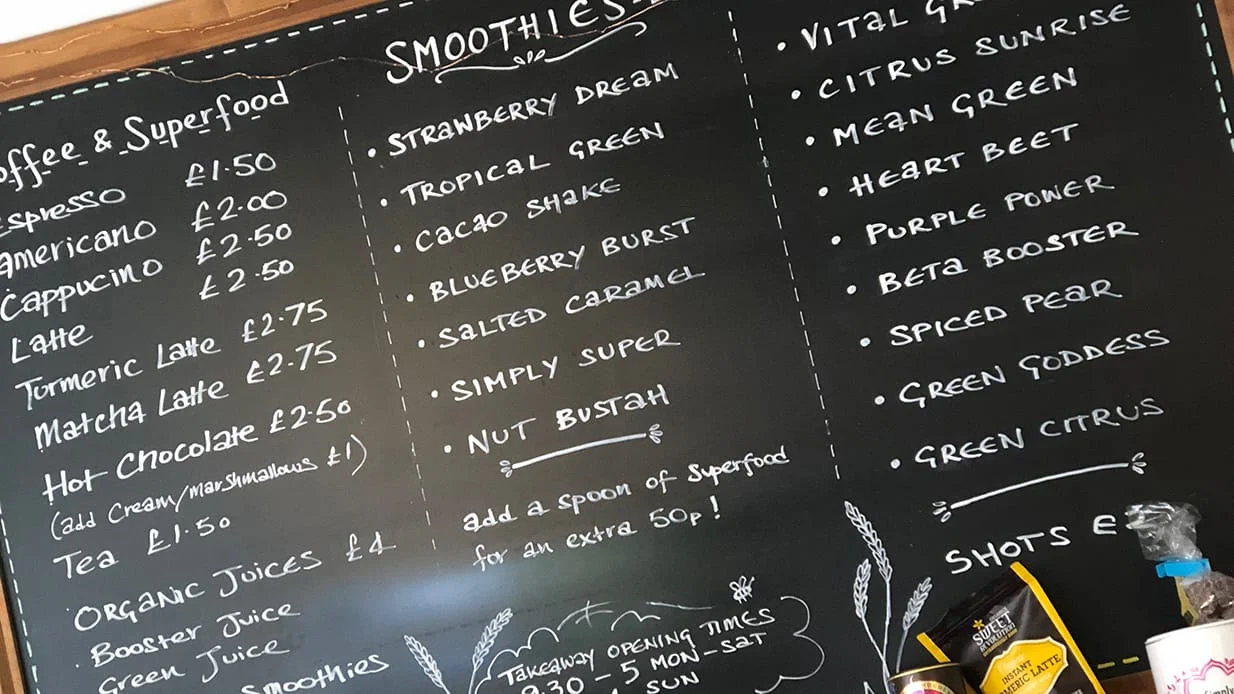 Coffee & Superfood
Espresso £1.50
americano £2.00
Cappucino £2.50
Latte £2.50
Turmeric Latte £2.75
Matcha Latte £2.75
Hot Chocolate £2.50
(add Cream/Marshmallows £1)
Tea £1.50
ORGANIC JUICES £4
· Booster Juice
Green Juice
Smoothies
SMOOTHIES
• STRAWBERRY DREAM
• TROPICAL GREEN
• CACAO SHAKE
• BLUEBERRY BURST
• SALTED CARAMEL
• SIMPLY SUPER
• NUT BUSTAH
add a spoon of Superfood
for an extra 50p!
TAKEAWAY OPENING TIMES
9.30 - 5 MON-SAT
SUN
• VITAL
• CITRUS SUNRISE
• MEAN GREEN
• HEART BEET
• PURPLE POWER
• BETA BOOSTER
• SPICED PEAR
• GREEN GODDESS
• GREEN CITRUS
SHOTS
SWEET
REVOLUTION
INSTANT
TURMERIC LATTE